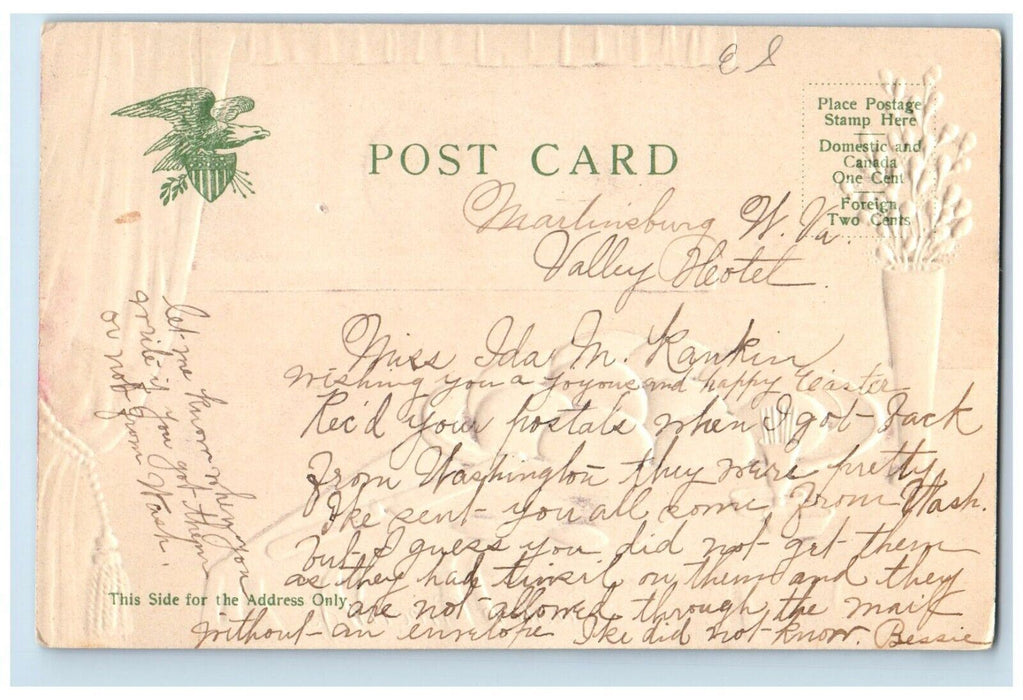 E S
Place Postage
Stamp Here
Domestic and
Canada
One Cent
Foreign
Two Cents
POST CARD
Martinsburg W. Va.
Valley Hotel.
Miss Ida M. Rankin
wishing you a joyous and happy Easter
Rec'd your postals when I got back
from Washington they were pretty
Ike sent you all some from Wash.
but I guess you did not get them
as they had tinsil on them and they
are not allowed through the mail
without an envelope Ike did not know. Bessie
let me know when you
write if you got them
or not from Wash.
This Side for the Address Only